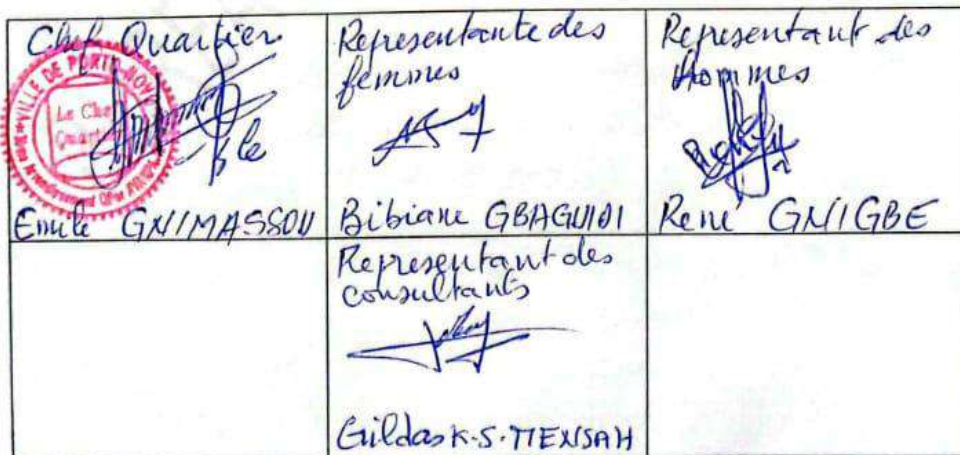 Chef Quartier
VILLE DE PORTO-NOVO
Le Chef
Quartier
Emile GNIMASSOU
Représentante des
femmes
Bibiane GBAGUIDI
Représentant des
Hommes
René GNIGBE
Representant des
consultants
Gildas K.S. MENSAH